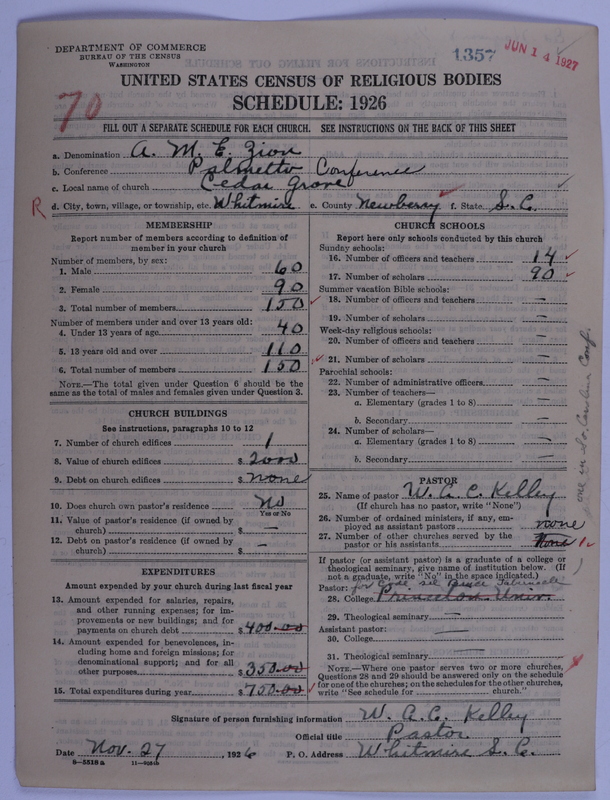 DEPARTMENT OF COMMERCE
BUREAU OF THE CENSUS
WASHINGTON
1357
JUN 14 1927
UNITED STATES CENSUS OF RELIGIOUS BODIES
SCHEDULE: 1926
70
FILL OUT A SEPARATE SCHEDULE FOR EACH CHURCH. SEE INSTRUCTIONS ON THE BACK OF THIS SHEET
a. Denomination A. M. E. Zion
b. Conference Palmetto Conference
c. Local name of church Cedar Grove
R d. City, town, village, or township, etc. Whitmire e. County Newberry f. State S. C.
MEMBERSHIP
Report number of members according to definition of member in your church
Number of members, by sex:
1. Male 60
2. Female 90
3. Total number of members 150
Number of members under and over 13 years old:
4. Under 13 years of age 40
5. 13 years old and over 110
6. Total number of members 150
NOTE.—The total given under Question 6 should be
same as the total of males and females given under Question 3.
CHURCH BUILDINGS
See instructions, paragraphs 10 to 12
7. Number of church edifices 1
8. Value of church edifices $ 2000
9. Debt on church edifices $ none
10. Does church own pastor's residence? No
Yes or No
11. Value of pastor's residence (if owned by
church) $ —
12. Debt on pastor's residence (if owned by
church) $ —
EXPENDITURES
Amount expended by your church during last fiscal year
13. Amount expended for salaries, repairs,
and other running expenses; for im-
provements or new buildings; and for
payments on church debt $ 400.00
14. Amount expended for benevolences, in-
cluding home and foreign missions; for
denominational support; and for all
other purposes $ 350.00
15. Total expenditures during year $ 750.00
CHURCH SCHOOLS
Report here only schools conducted by this church
Sunday schools:
16. Number of officers and teachers 14
17. Number of scholars 90
Summer vacation Bible schools:
18. Number of officers and teachers —
19. Number of scholars —
Week-day religious schools:
20. Number of officers and teachers —
21. Number of scholars —
Parochial schools:
22. Number of administrative officers —
23. Number of teachers—
a. Elementary (grades 1 to 8) —
b. Secondary —
24. Number of scholars—
a. Elementary (grades 1 to 8) —
b. Secondary —
PASTOR
25. Name of pastor W. A. C. Kelley
(If church has no pastor, write "None")
26. Number of ordained ministers, if any, em-
ployed as assistant pastors none
27. Number of other churches served by the
pastor or his assistants None 1
If pastor (or assistant pastor) is a graduate of a college or
theological seminary, give name of institution below. (If
not a graduate, write "No" in the space indicated.)
Pastor: for Coll. see
28. College Princeton Univ.
29. Theological seminary —
Assistant pastor:
30. College —
31. Theological seminary —
NOTE.—Where one pastor serves two or more churches,
Questions 28 and 29 should be answered only on the schedule
for one of the churches; on the schedules for the other churches,
write "See schedule for church."
one in So. Carolina Conf.
Signature of person furnishing information W. A. C. Kelley
Official title Pastor
Date Nov. 27, 1926 P. O. Address Whitmire S. C.
8—5518a